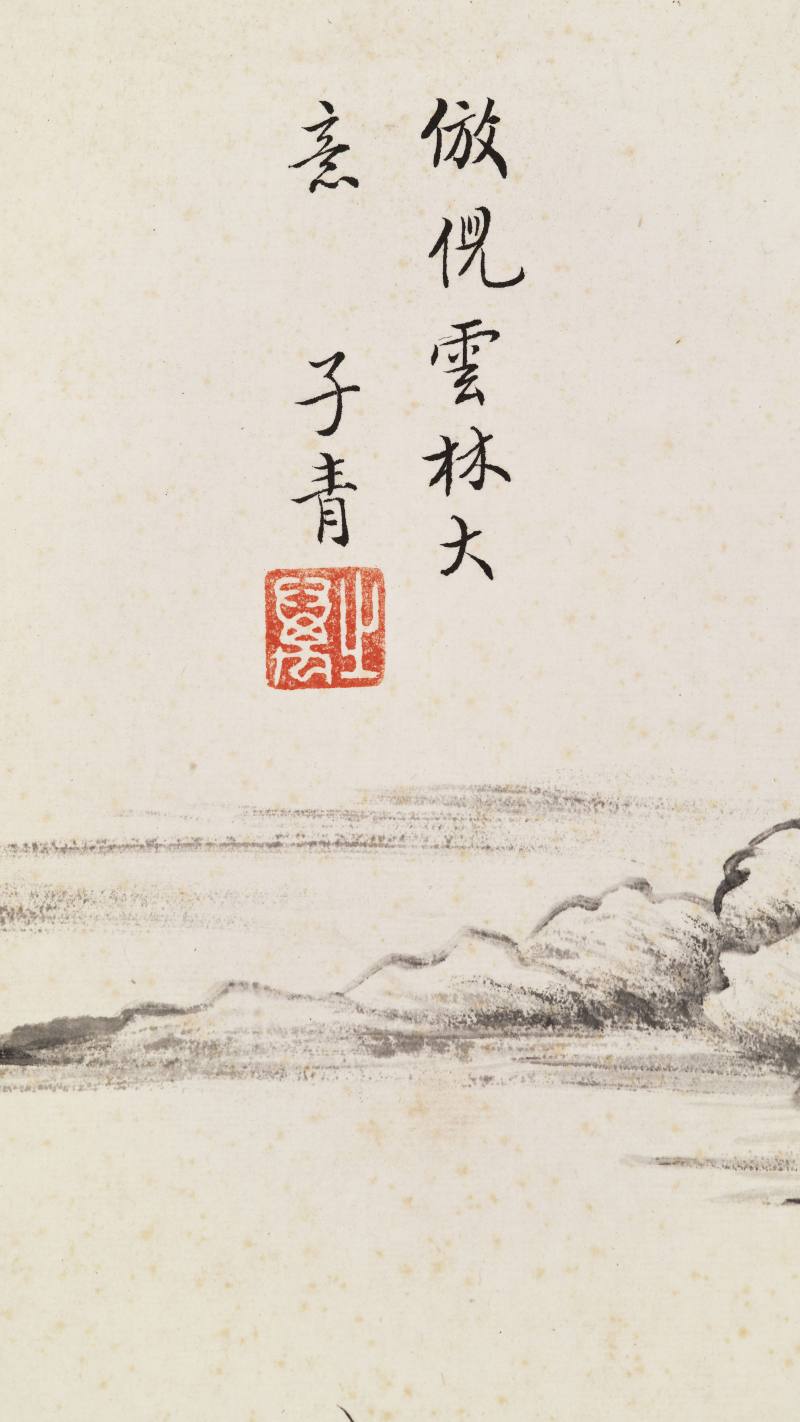 倣倪雲林大
意　子青
之萬